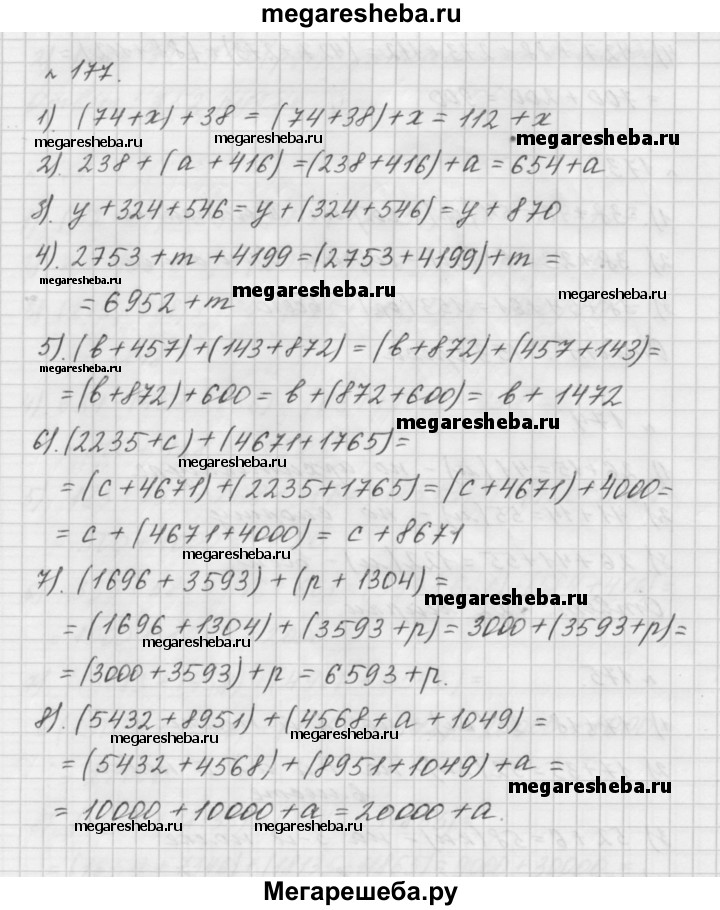 megaresheba.ru
№ 177.
1). (74+x)+38 = (74+38)+x = 112 +x
megaresheba.ru megaresheba.ru megaresheba.ru
2). 238 + (a + 416) =(238+416)+a = 654+a
3). y + 324 + 546 = y + (324 + 546) = y + 870
4). 2753 + m + 4199 =(2753+4199)+m =
megaresheba.ru megaresheba.ru megaresheba.ru
= 6952 + m
5). (в + 457)+(143+872) = (в + 872) + (457+143)=
megaresheba.ru
=(в+872)+600 = в + (872+600) = в + 1472
megaresheba.ru
6). (2235+c) + (4671+1765)=
megaresheba.ru
= (c + 4671)+(2235+1765) = (c + 4671) + 4000=
= c + (4671+4000) = c + 8671
megaresheba.ru
7). (1696 + 3593) + (p + 1304) =
megaresheba.ru
= (1696 + 1304) + (3593 +p) = 3000+(3593+p)=
megaresheba.ru
= (3000+3593)+p = 6593+p.
8). (5432+8951) + (4568+a + 1049) =
megaresheba.ru megaresheba.ru
= (5432+4568)+(8951+1049) +a =
megaresheba.ru
= 10000 + 10000 +a = 20000 +a.
megaresheba.ru megaresheba.ru
Мегарешеба.ру